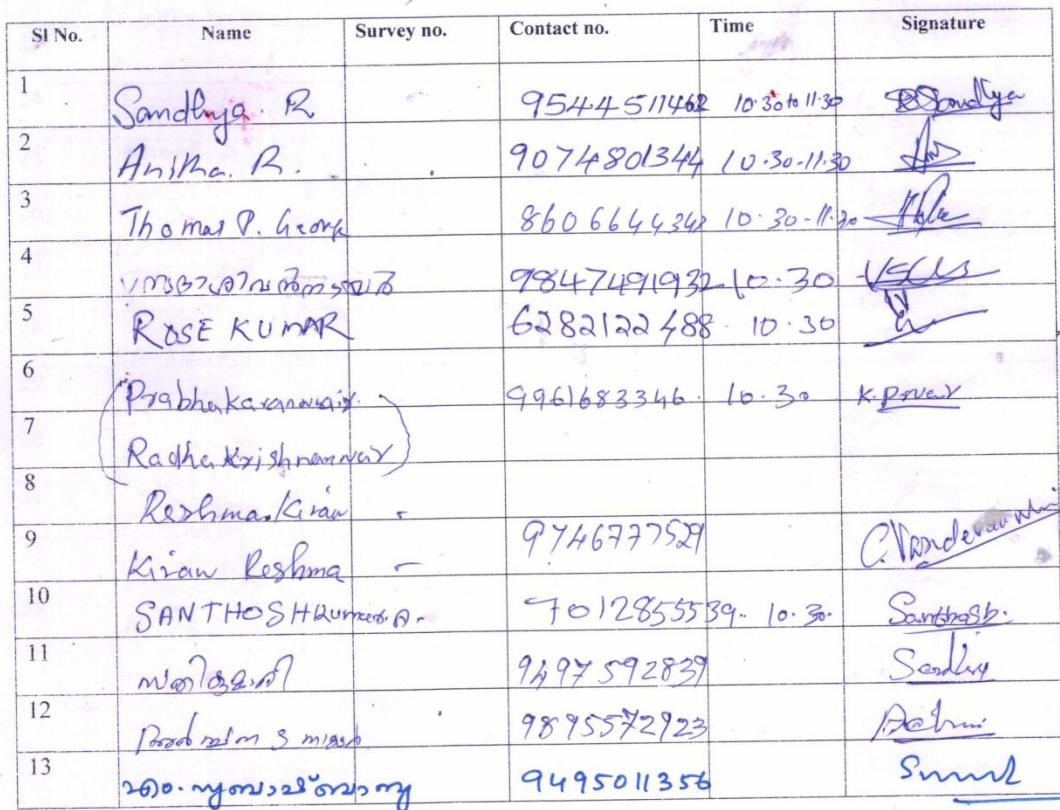 Sl No. Name Survey no. Contact no. Time Signature
1 Sandhya. R 9544511462 10.30 to 11.30 Sandhya
2 Anitha. R. 9074801344 10.30-11.30
3 Thomas P. George 8606644342 10.30-11.30
4 9847491932 10.30
5 ROSE KUMAR 6282122488 10.30
6 Prabhakarannair. 9961683346. 10.30 K.
7 Radhakrishnannair
8 Reshma.Kiran -
9 Kiran Reshma - 9746777529
10 SANTHOSHKumar.A. 7012855539. 10.30. Santhosh.
11 സതികുമാരി 9497592839
12 9895572923
13 എം. സുബാഷ്ബാബു 9495011356